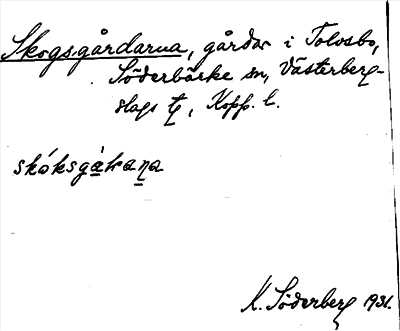 Skogsgårdarna, gårdar i Tolvsbo,
Söderbärke sn, Västerberg-
slags tg, Kopp. l.
skóksgàṛaṇa
K. Söderberg 1931.